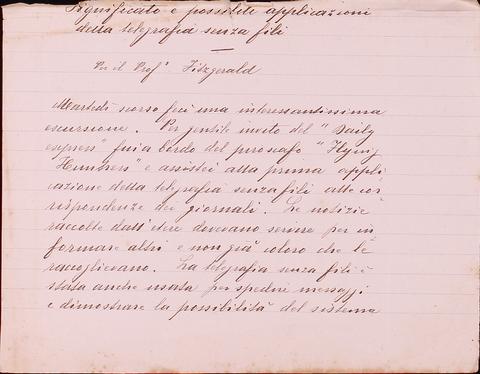 Significato e possibili applicazioni
della telegrafia senza fili
Per il Prof. Fitzgerald
Martedì scorso feci una interessantissima
escursione. Per gentile invito del "Daily
express" fui a bordo del piroscafo "Flying
Huntress" e assistei alla prima appli
cazione della telegrafia senza fili alle cor
rispondenze dei giornali. Le notizie
raccolte dall'etere dovevano servire per in
formare altri e non già coloro che le
raccoglievano. La telegrafia senza fili è
stata anche usata per spedire messaggi
e dimostrare la possibilità del sistema